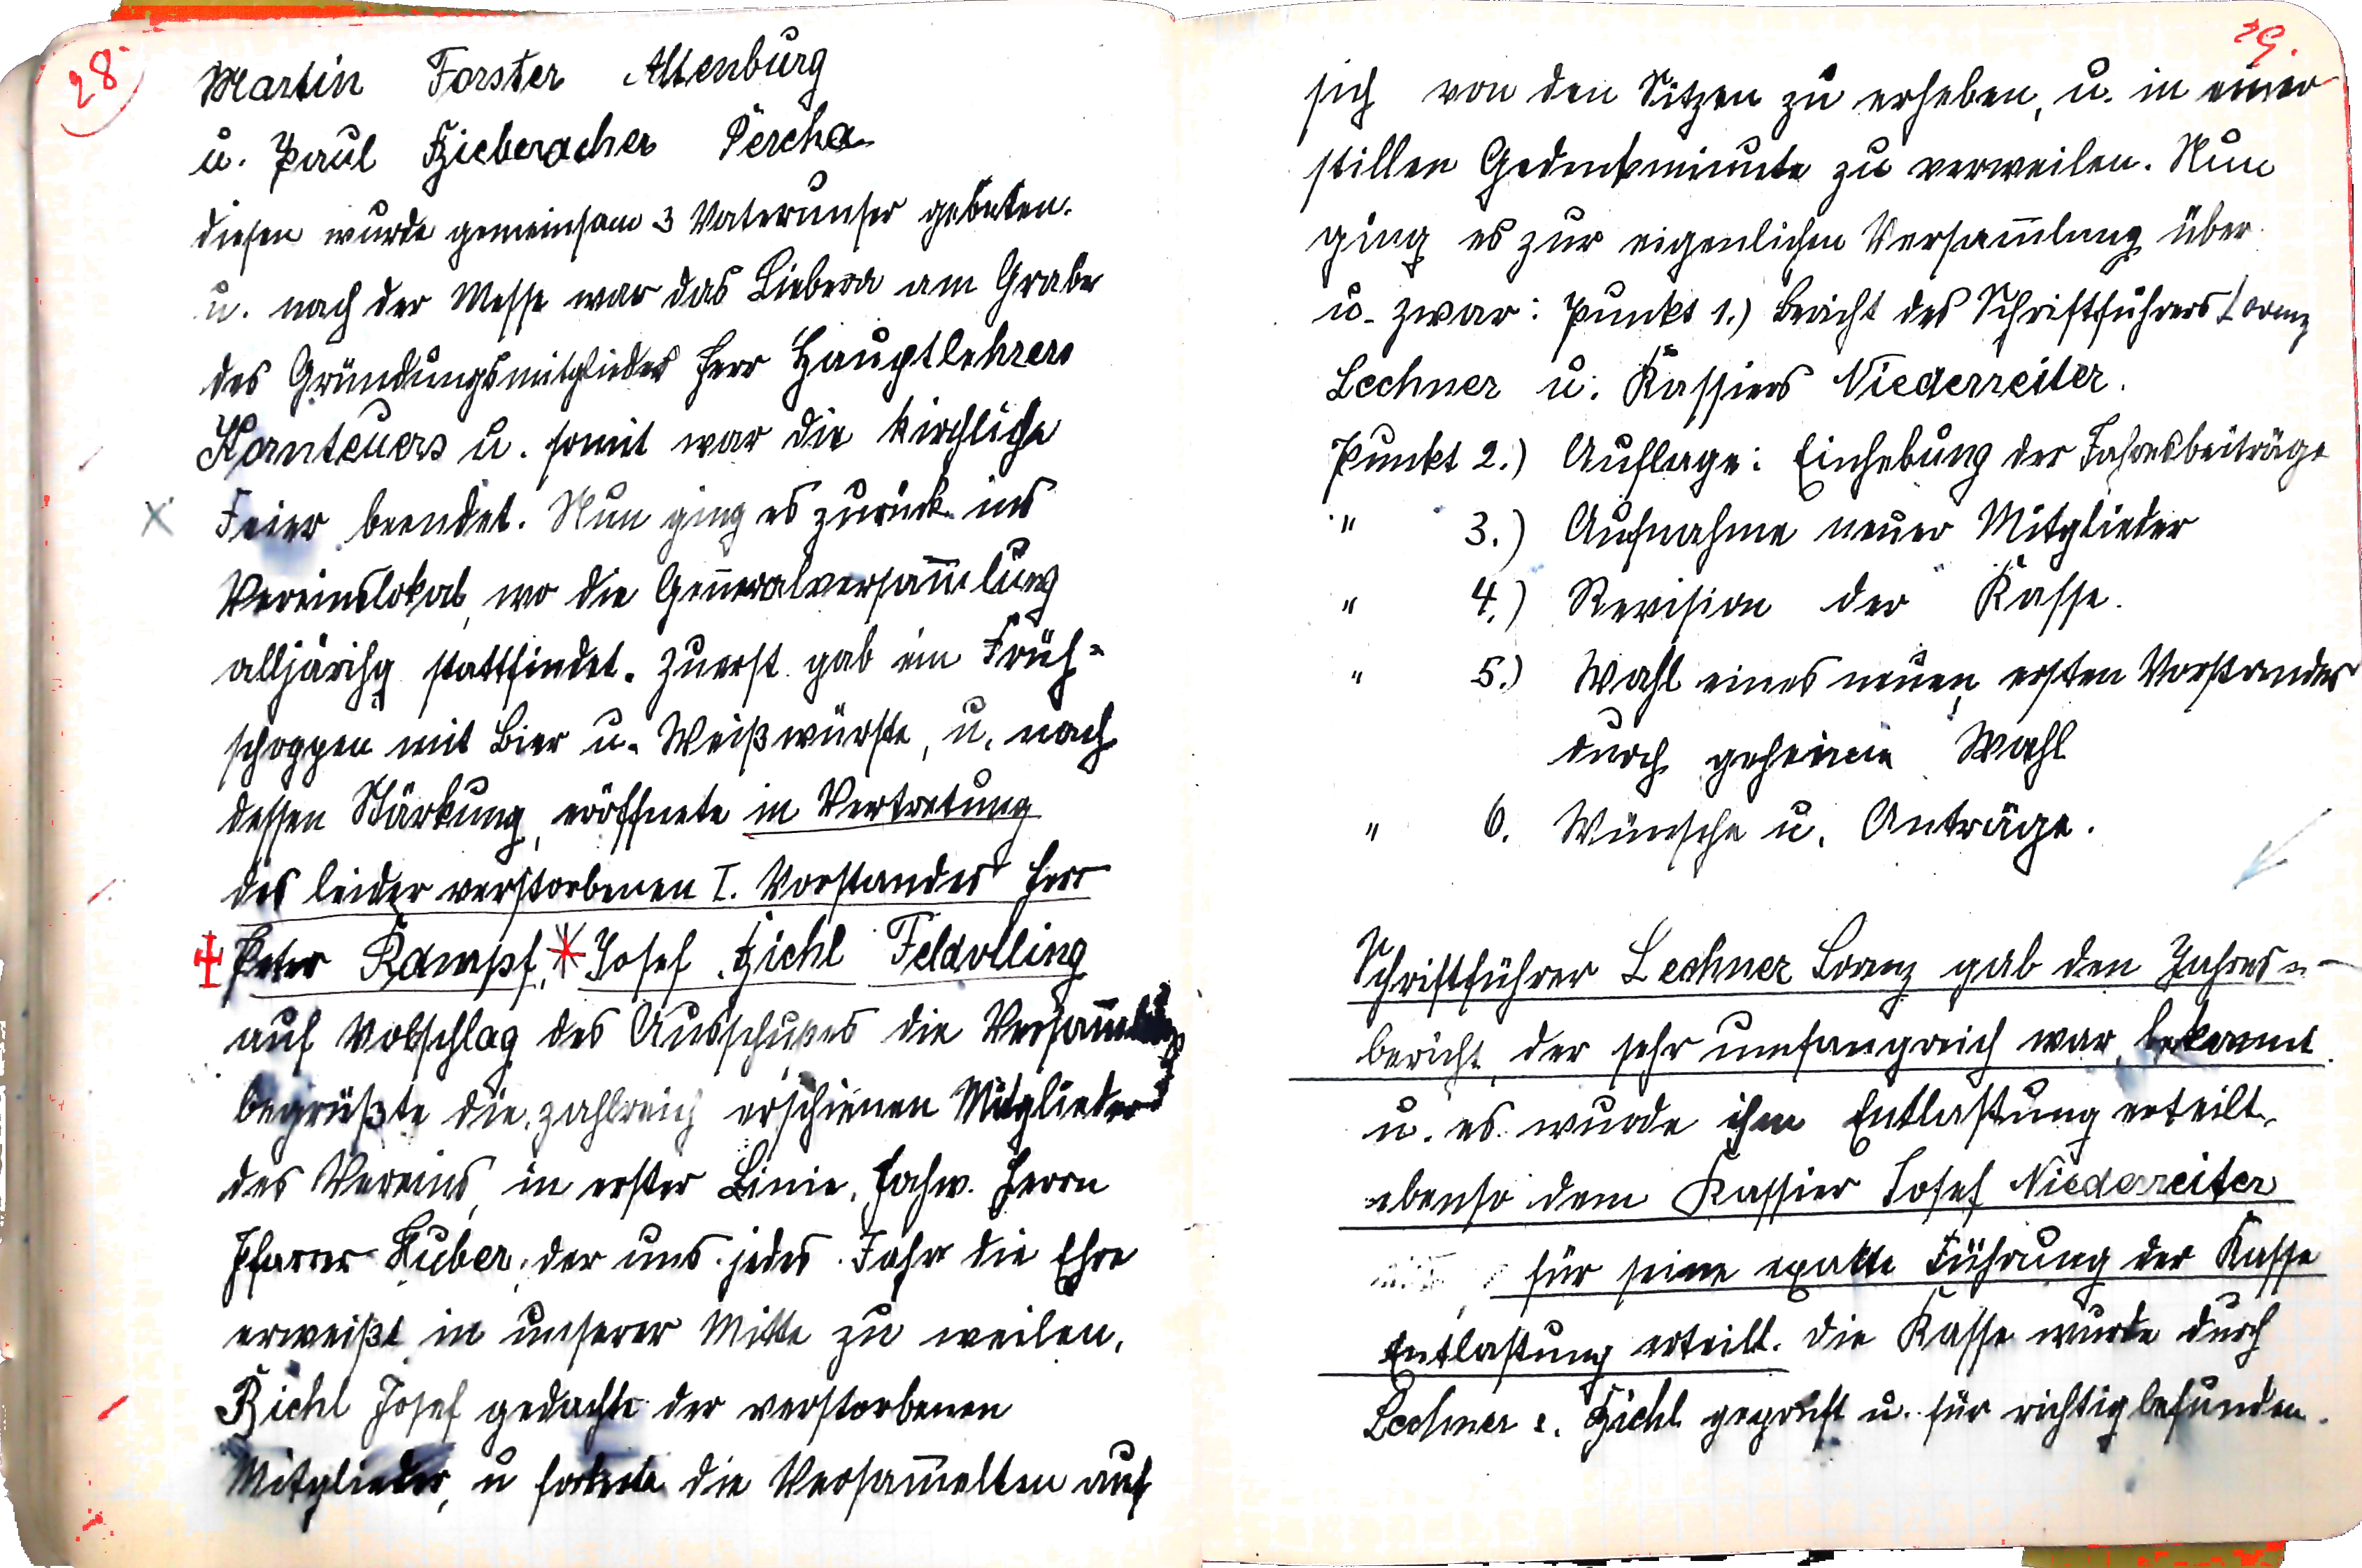 28
Martin Forster Altenburg
u. Paul Bieberacher Percha
diesen wurde gemeinsam 3 Vaterunser gebeten.
u. nach der Messe war das Liebera am Grabe
des Gründungsmitgliedes Herr Hauptlehrers
Kornteuers u. somit war die kirchliche
Feier beendet. Nun ging es zurück ins
Vereinslokal, wo die Gen̄eralversam̄lung
alljärihg stattfindet. Zuerst gab ein Früh=
schoppen mit Bier u. Weißwürste, u. nach
dessen Stärkung, eröffnete in Vertretung
des leider verstorbenen I. Vorstandes Herr
Peter Kampf, * Josef Bichl Feldolling
auf Vobschlag des Ausschußes die Versam̄lung
begrüßte die zahlreich erschienen Mitglieder
des Vereins, in erster Linie, Hochw. Herrn
Pfarrer Huber, der uns jedes Jahr die Ehre
erweißt in unserer Mitte zu weilen.
Bichl Josef gedachte der verstorbenen
Mitglieder, u forderte die Versam̄elten auf
29.
sich von den Sitzen zu erheben, u. in einer
stillen Gedenkminute zu verweilen. Nun
ging es zur eigenlichen Versam̄lung über
u. zwar: Punkt 1.) Bericht des Schriftführers Lorenz
Lechner u. Kassiers Niederreiter.
Punkt 2.) Auflage: Einhebung der Jahresbeiträge
" 3.) Aufnahme neuer Mitglieder
" 4.) Revision der Kasse.
" 5.) Wahl eines neuen ersten Vorstandes
durch geheime Wahl
" 6. Wünsche u. Anträge.
Schriftführer Lechner Lorenz gab den Jahres=
bericht, der sehr umfangreich war, bekannt.
u. es wurde ihm Entlastung erteilt,
ebenso dem Kassier Josef Niederreiter
für seine exakte Führung der Kasse
Entlastung erteilt. Die Kasse wurde durch
Lechner u. Bichl geprüft u. für richtig befunden.